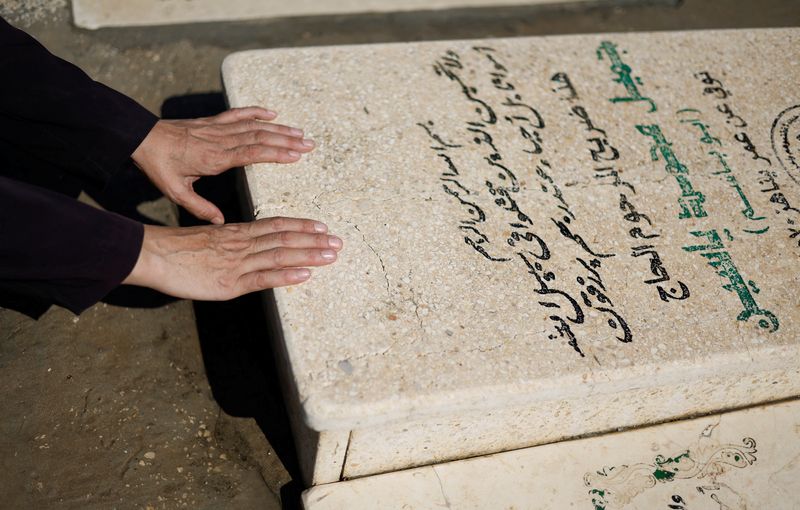 بسم الله الرحمن الرحيم
ولا تحسبن الذين قتلوا في سبيل الله
أمواتا بل أحياء عند ربهم يرزقون
هذا ضريح المرحوم الحاج
جميل محمود ياسين
(ابو باسم)
توفي عن عمر يناهز